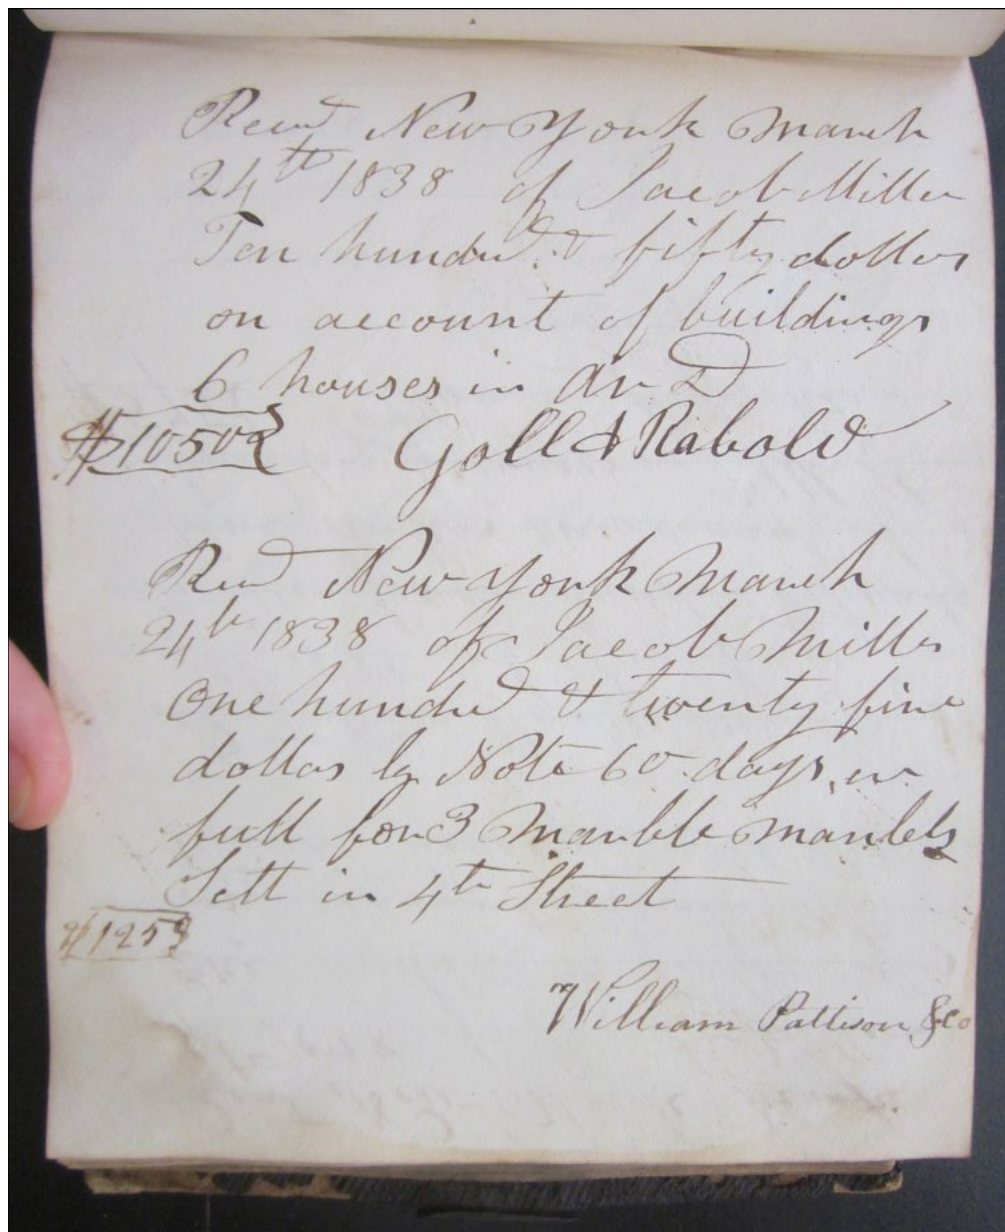 Recd New York March
24th 1838 of Jacob Miller
Ten hundd & fifty dollars
on account of buildings
6 houses in Av D
$1050 Goll & Rabold
Recd New York March
24th 1838 of Jacob Miller
One hundd & twenty five
dollars by Note 60 days in
full for 3 Marble mantels
Sett in 4th Street
$125
William Pattison & Co